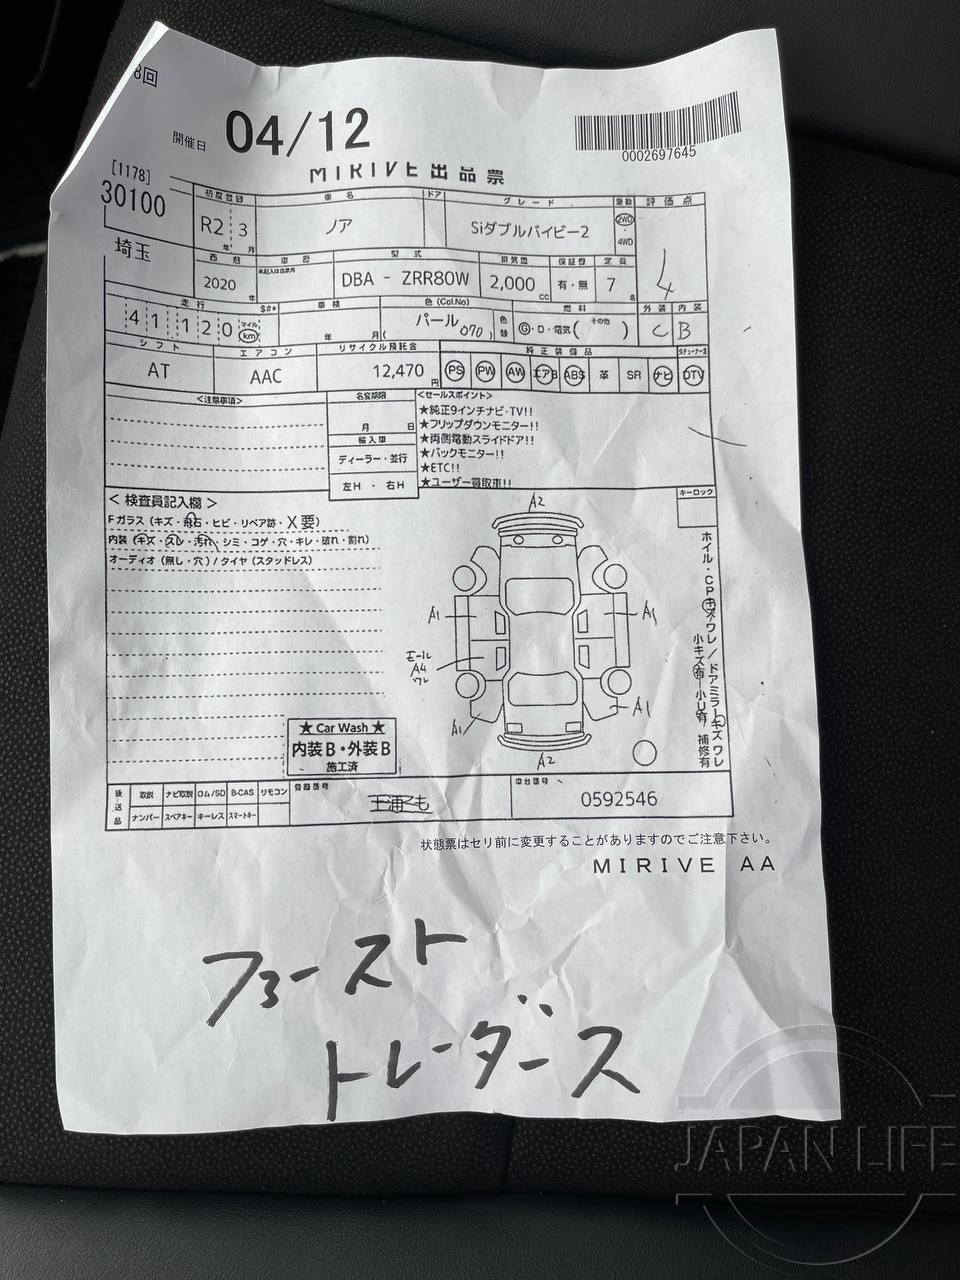 8回
開催日 04/12
0002697645
MIRIVE出品票
[1178]
30100
埼玉
初度登録 車名 ドア グレード 駆動 評価点
R2 3 ノア Siダブルバイビー2 2WD・4WD 4
年 月
西暦 車歴 型式 排気量 保証書 定員
2020 年 未記入は自家用 DBA - ZRR80W 2,000 cc 有・無 7 名
走行 $#* 車検 色(Col.No) 色替 燃料 外装 内装
41120 マイル km 年 月( パール 070 ) G・D・電気( その他 ) C B
シフト エアコン リサイクル預託金 純正装備品
AT AAC 12,470 円 PS PW AW エアB ABS 革 SR ナビ DTV
<注意事項> 名変期限 <セールスポイント>
月 日
輸入車
ディーラー・並行
左H ・ 右H
★純正9インチナビ・TV!!
★フリップダウンモニター!!
★両側電動スライドドア!!
★バックモニター!!
★ETC!!
★ユーザー買取車!!
<検査員記入欄>
Fガラス (キズ・飛石・ヒビ・リペア跡・X要)
内装 (キズ・スレ・汚れ・シミ・コゲ・穴・キレ・破れ・割れ)
オーディオ (無し・穴) / タイヤ (スタッドレス)
キーロック
A2
A1
A1
モール
A4
ワレ
A1
A1
A2
ホイル・CPキズワレ/ドアミラーキズワレ
小キズ有・小U有 補修有
★ Car Wash ★
内装B・外装B
施工済
後送品 取説 ナビ取説 ロム/SD B-CAS リモコン
ナンバー スペアキー キーレス スマートキー
登録番号
車台番号
0592546
状態票はセリ前に変更することがありますのでご注意下さい。
MIRIVE AA
フョースト
トレーダース
JAPAN LIFE